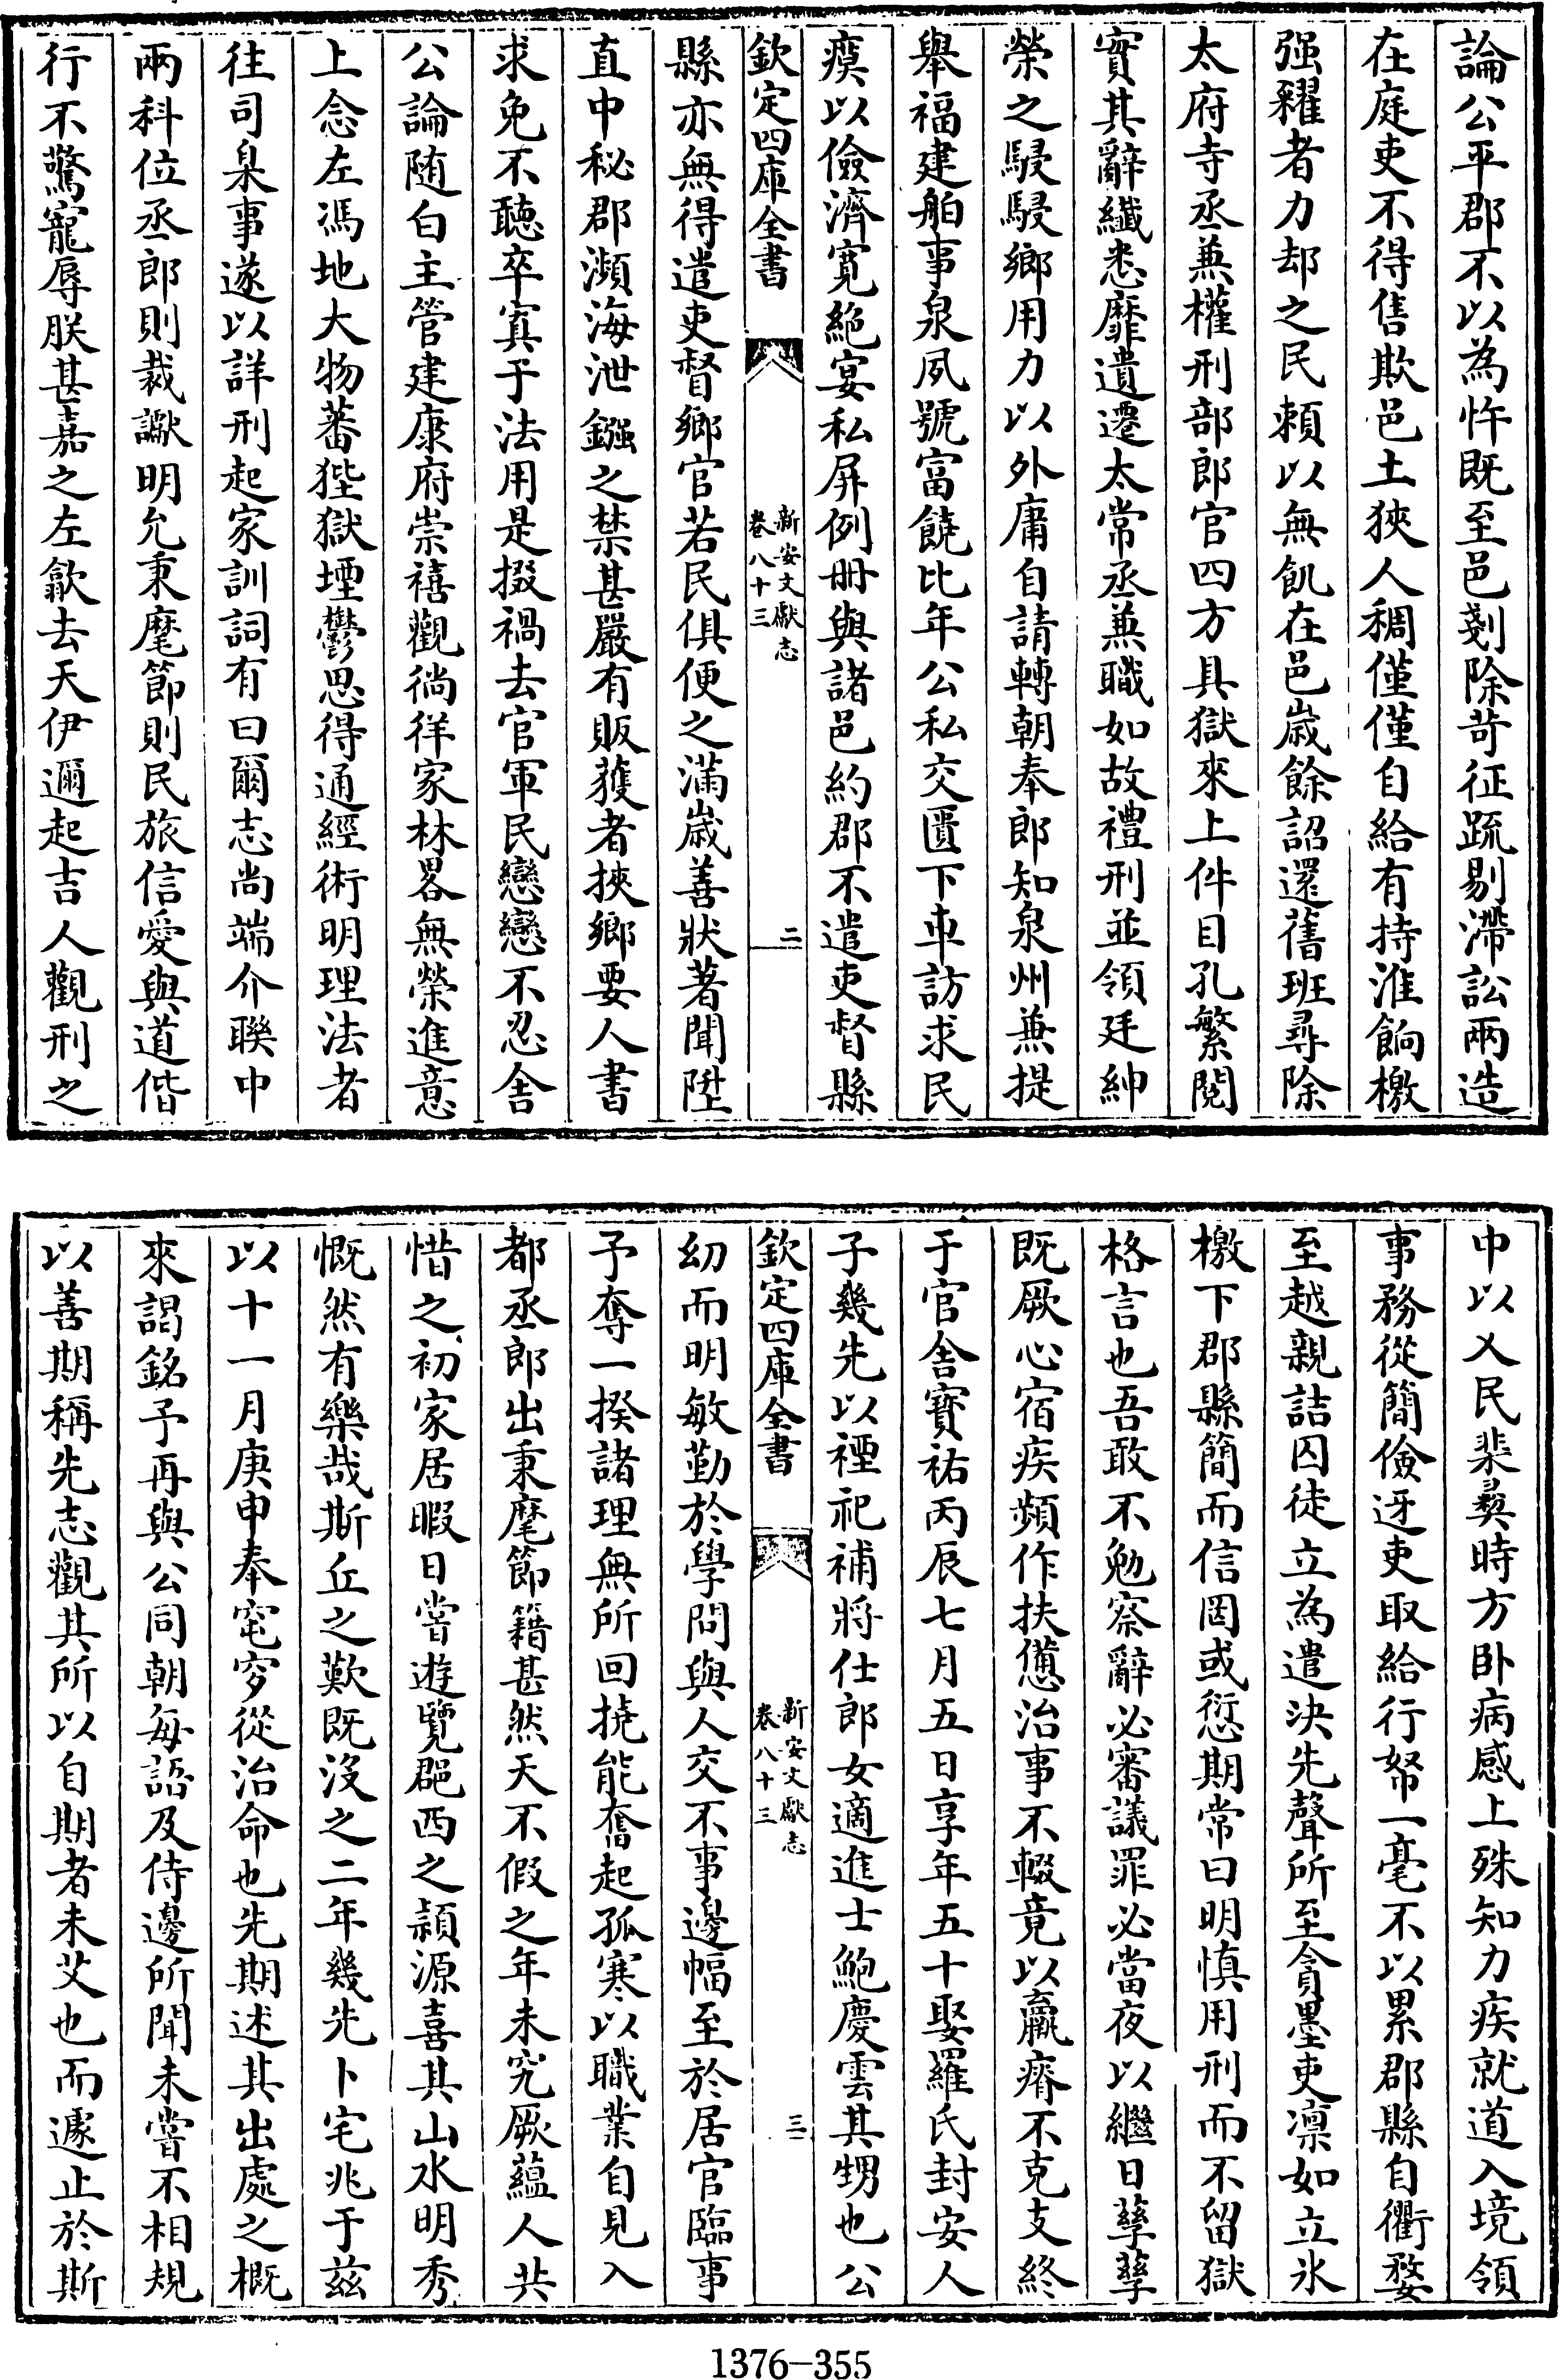 論公平郡不以為忤既至邑剗除苛征疏剔滯訟兩造
在庭吏不得售欺邑土狹人稠僅僅自給有持淮餉檄
强糴者力却之民頼以無飢在邑嵗餘詔還舊班尋除
太府寺丞兼權刑部郎官四方具獄來上件目孔繁閱
實其辭纎悉靡遺遷太常丞兼職如故禮刑並領廷紳
榮之駸駸嚮用力以外庸自請轉朝奉郎知泉州兼提
舉福建舶事泉夙號富饒比年公私交匱下車訪求民
瘼以儉濟寛絶宴私屏例册與諸邑約郡不遣吏督縣
欽定四庫全書
新安文獻志
卷八十三
二
縣亦無得遣吏督鄉官若民俱便之滿嵗善狀著聞陞
直中秘郡瀕海泄鏹之禁甚嚴有販獲者挾鄉要人書
求免不聽卒寘于法用是掇禍去官軍民戀戀不忍舍
公論随白主管建康府崇禧觀徜徉家林畧無榮進意
上念左馮地大物蕃狴獄堙鬱思得通經術明理法者
往司臬事遂以詳刑起家訓詞有曰爾志尚端介聯中
兩科位丞郎則裁讞明允秉麾節則民旅信愛與道偕
行不驚寵辱朕甚嘉之左歙去天伊邇起吉人觀刑之
中以乂民棐彞時方卧病感上殊知力疾就道入境領
事務從簡儉迓吏取給行帑一毫不以累郡縣自衢婺
至越親詰囚徒立為遣決先聲所至貪墨吏凛如立氷
檄下郡縣簡而信罔或愆期常曰明慎用刑而不留獄
格言也吾敢不勉察辭必審議罪必當夜以繼日孳孳
既厥心宿疾頻作扶憊治事不輟竟以羸瘠不克支終
于官舍寶祐丙辰七月五日享年五十娶羅氏封安人
子幾先以禋祀補將仕郎女適進士鮑慶雲其甥也公
欽定四庫全書
新安文獻志
卷八十三
三
幼而明敏勤於學問與人交不事邊幅至於居官臨事
予奪一揆諸理無所回撓能奮起孤寒以職業自見入
都丞郎出秉麾節籍甚然天不假之年未究厥藴人共
惜之初家居暇日嘗遊覽郡西之頴源喜其山水明秀
慨然有樂哉斯丘之歎既沒之二年幾先卜宅兆于兹
以十一月庚申奉窀穸從治命也先期述其出處之概
來謁銘予再與公同朝每語及侍邊所聞未嘗不相規
以善期稱先志觀其所以自期者未艾也而遽止於斯
1376-355